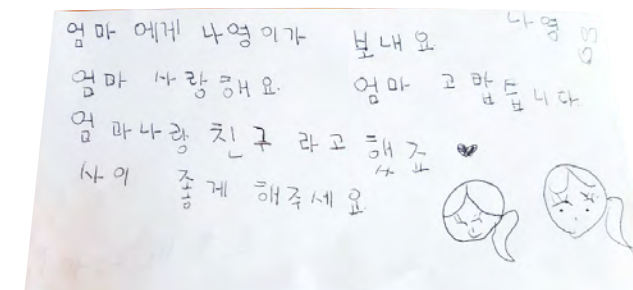 나영
엄마 에게 나영이가 보내요
엄마 사랑해요. 엄마 고맙습니다
엄마나랑 친구 라고 했죠
사이 좋게 해주세요